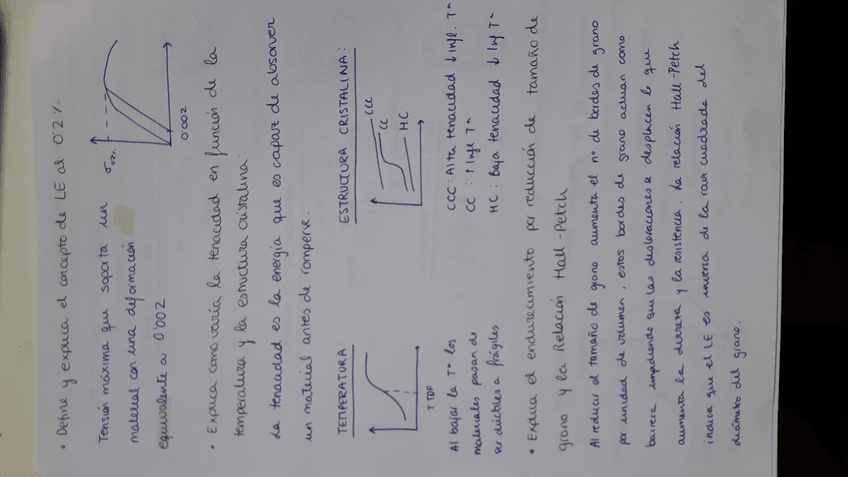 • Define y explica el concepto de LE al 0'2%.
Tensión máxima que soporta un
material con una deformación
equivalente a 0'002
σ0'2%
0'002
• Explica como varía la tenacidad en función de la
temperatura y la estructura cristalina:
La tenacidad es la energía que es capaz de absorver
un material antes de romperse.
TEMPERATURA:
T TDF
Al bajar la Tª los
materiales pasan de
ser dúctiles a frágiles
ESTRUCTURA CRISTALINA:
CCC
CC
HC
CCC: Alta tenacidad ↓ infl. Tª
CC : ↑ infl Tª
HC : Baja tenacidad ↓ inf Tª
• Explica el endurecimiento por reducción de tamaño de
grano y la Relación Hall-Petch
Al reducir el tamaño de grano aumenta el nº de bordes de grano
por unidad de volumen, estos bordes de grano actuan como
barrera impidiendo que las dislocaciones se desplacen lo que
aumenta la dureza y la resistencia. La relación Hall-Petch
indica que el LE es inversa de la raíz cuadrada del
diámetro del grano.